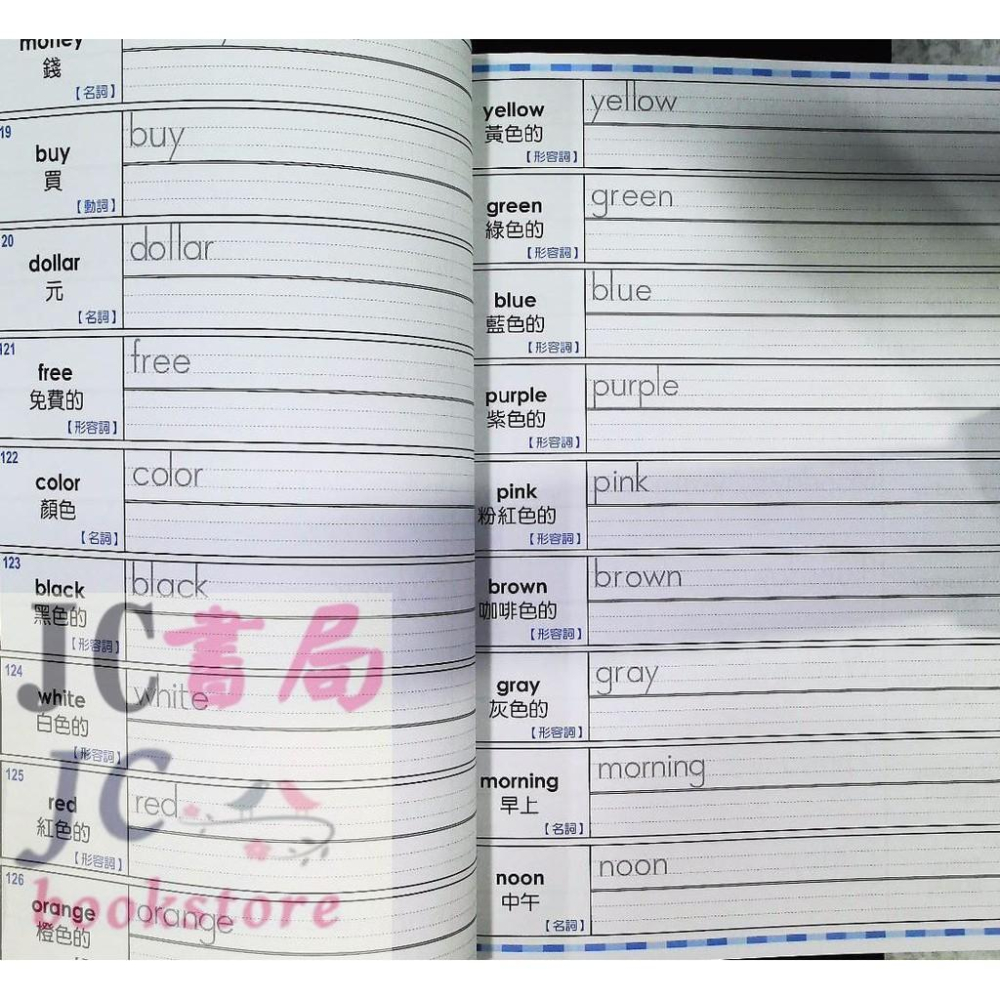 money
錢
【名詞】
19
buy
買
【動詞】
buy
20
dollar
元
【名詞】
dollar
121
free
免費的
【形容詞】
free
122
color
顏色
【名詞】
color
123
black
黑色的
【形容詞】
black
124
white
白色的
【形容詞】
white
125
red
紅色的
【形容詞】
red
126
orange
橙色的
orange
yellow
黃色的
【形容詞】
yellow
green
綠色的
【形容詞】
green
blue
藍色的
【形容詞】
blue
purple
紫色的
【形容詞】
purple
pink
粉紅色的
【形容詞】
pink
brown
咖啡色的
【形容詞】
brown
gray
灰色的
【形容詞】
gray
morning
早上
【名詞】
morning
noon
中午
【名詞】
noon
JC書局
JC
bookstore